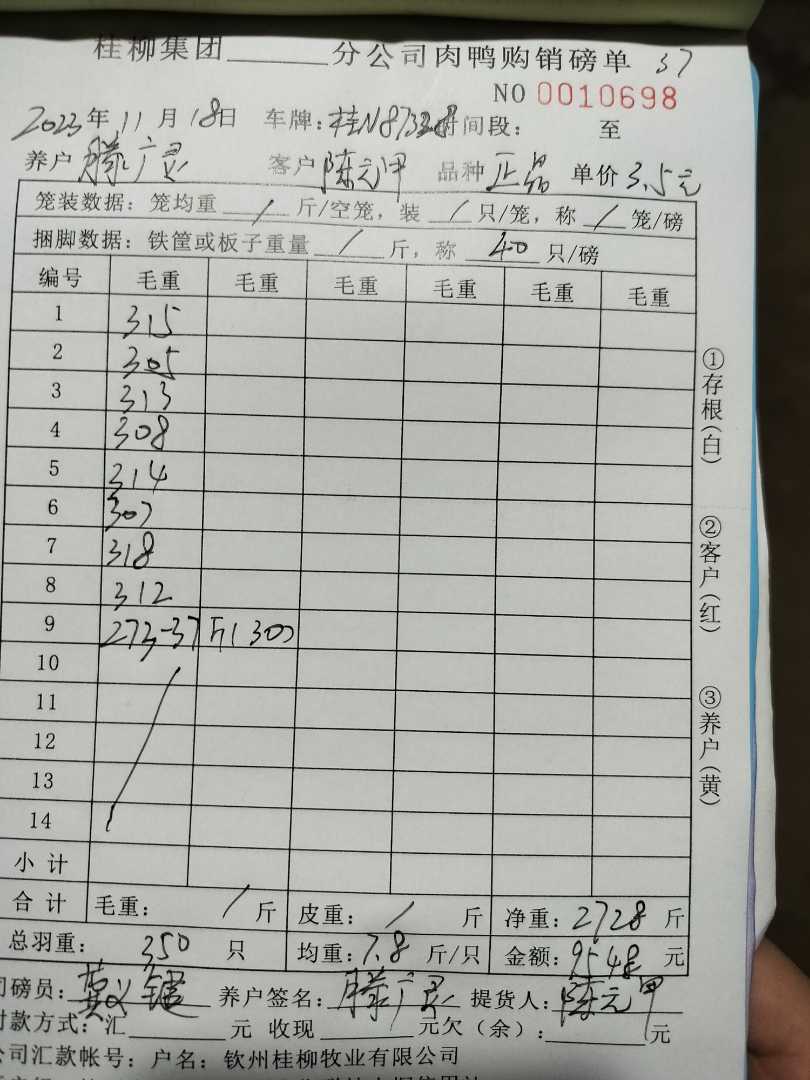 桂柳集团______分公司肉鸭购销磅单 37
NO 0010698
2023年11月18日 车牌：桂N87328 时间段： 至
养户 滕广灵 客户 陈元甲 品种 正品 单价 3.5元
笼装数据：笼均重 / 斤/空笼，装 / 只/笼，称 / 笼/磅
捆脚数据：铁筐或板子重量 / 斤，称 40 只/磅
编号 毛重 毛重 毛重 毛重 毛重 毛重
1 315
2 305
3 313
4 308
5 314
6 307
7 318
8 312
9 273-37
10
11
12
13
14
小计
合计 毛重： / 斤 皮重： / 斤 净重：2728 斤
总羽重： 350 只 均重：7.8 斤/只 金额：9548 元
司磅员： 养户签名：滕广灵 提货人：陈元甲
付款方式：汇______元 收现______元欠（余）：______元
公司汇款帐号：户名：钦州桂柳牧业有限公司
①存根（白）
②客户（红）
③养户（黄）